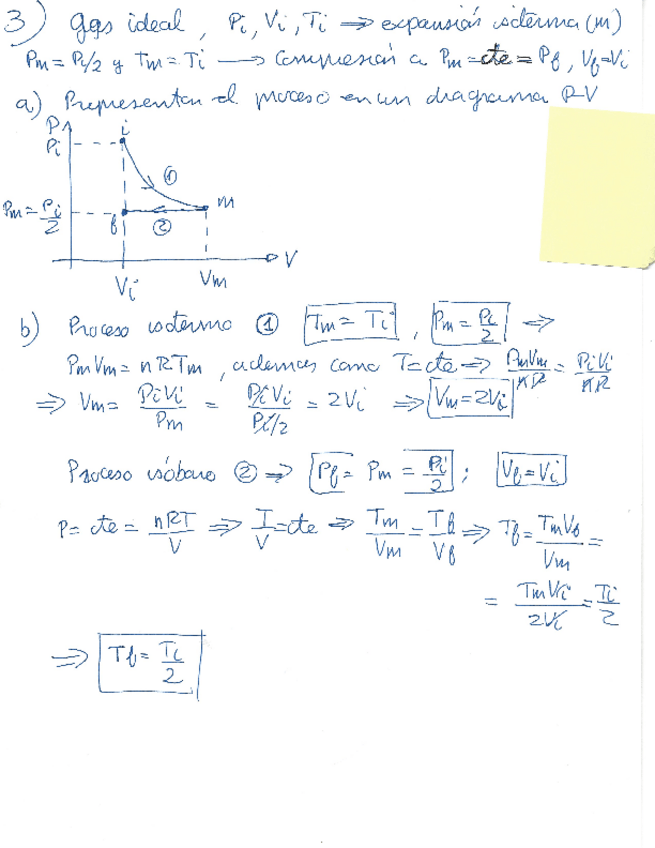 3) Gas ideal, Pi, Vi, Ti ⟹ expansión isoterma (m)
Pm = Pi/2 y Tm = Ti ⟶ Compresión a Pm = cte = Pf, Vf = Vi
a) Representar el proceso en un diagrama P-V
P
i
Pi
①
Pm = Pi/2
m
f
②
V
Vi
Vm
b) Proceso isotermo ① Tm = Ti , Pm = Pi/2 ⟹
PmVm = nRTm , además como T = cte ⟹ PmVm/nR = PiVi/nR
⟹ Vm = PiVi/Pm = PiVi/Pi/2 = 2Vi ⟹ Vm = 2Vi
Proceso isóbaro ② ⟹ Pf = Pm = Pi/2 ; Vf = Vi
P = cte = nRT/V ⟹ T/V = cte ⟹ Tm/Vm = Tf/Vf ⟹ Tf = TmVf/Vm =
= TmVi/2Vi = Ti/2
⟹ Tf = Ti/2